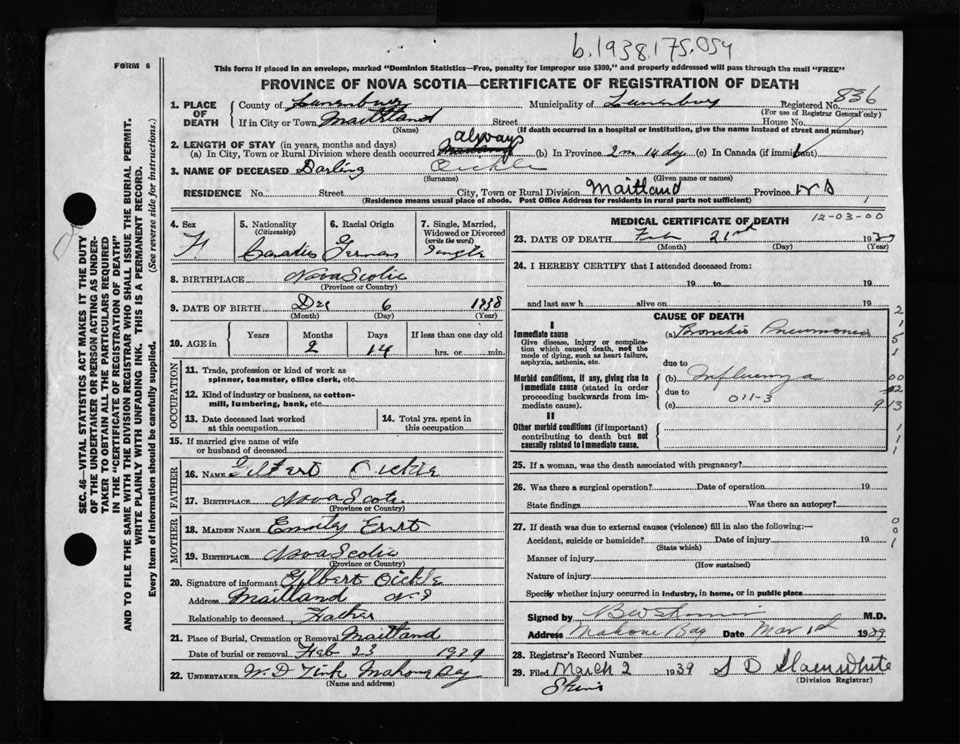 b.1938.175.054
FORM 6
This form if placed in an envelope, marked "Dominion Statistics—Free, penalty for improper use $300," and properly addressed will pass through the mail "FREE"
PROVINCE OF NOVA SCOTIA—CERTIFICATE OF REGISTRATION OF DEATH
SEC. 46—VITAL STATISTICS ACT MAKES IT THE DUTY
OF THE UNDERTAKER OR PERSON ACTING AS UNDER-
TAKER TO OBTAIN ALL THE PARTICULARS REQUIRED
IN THE "CERTIFICATE OF REGISTRATION OF DEATH"
AND TO FILE THE SAME WITH THE DIVISION REGISTRAR WHO SHALL ISSUE THE BURIAL PERMIT.
WRITE PLAINLY WITH UNFADING INK. THIS IS A PERMANENT RECORD.
Every item of information should be carefully supplied. (See reverse side for instructions.)
1. PLACE OF DEATH County of Lunenburg Municipality of Lunenburg Registered No. 836
(For use of Registrar General only)
If in City or Town Maitland Street House No.
(Name) (If death occurred in a hospital or institution, give the name instead of street and number)
2. LENGTH OF STAY (in years, months and days) always
(a) In City, Town or Rural Division where death occurred (b) In Province 2m 14 day (c) In Canada (if immigrant)
3. NAME OF DECEASED Darling Oickle
(Surname) (Given name or names)
RESIDENCE No. Street City, Town or Rural Division Maitland Province N S
(Residence means usual place of abode. Post Office Address for residents in rural parts not sufficient)
4. Sex 5. Nationality (Citizenship) 6. Racial Origin 7. Single, Married, Widowed or Divorced (write the word)
F German Single
8. BIRTHPLACE Nova Scotia
(Province or Country)
9. DATE OF BIRTH Dec 6 1938
(Month) (Day) (Year)
10. AGE in Years Months Days If less than one day old
2 14 hrs. or min.
OCCUPATION
11. Trade, profession or kind of work as
spinner, teamster, office clerk, etc.
12. Kind of industry or business, as cotton-
mill, lumbering, bank, etc.
13. Date deceased last worked at this occupation 14. Total yrs. spent in this occupation
15. If married give name of wife
or husband of deceased
FATHER
16. NAME Gilbert Oickle
17. BIRTHPLACE Nova Scotia
(Province or Country)
MOTHER
18. MAIDEN NAME Emily Ernst
19. BIRTHPLACE Nova Scotia
(Province or Country)
20. Signature of informant Gilbert Oickle
Address Maitland N S
Relationship to deceased Father
21. Place of Burial, Cremation or Removal Maitland
Date of burial or removal Feb 23 1939
22. UNDERTAKER W. D. Zink Mahone Bay
(Name and address)
MEDICAL CERTIFICATE OF DEATH
12-03-00
23. DATE OF DEATH Feb 21st 1939
(Month) (Day)
24. I HEREBY CERTIFY that I attended deceased from:
19 to 19
and last saw h alive on 19
CAUSE OF DEATH
I
Immediate cause (a) Broncho Pneumonia
Give disease, injury or complica-
tion which caused death, not the
mode of dying, such as heart failure,
asphyxia, asthenia, etc. due to
Morbid conditions, if any, giving rise to (b) Influenza
immediate cause (stated in order due to
proceeding backwards from im- 011-3
mediate cause). (c)
II
Other morbid conditions (if important)
contributing to death but not
causally related to immediate cause.
25. If a woman, was the death associated with pregnancy?
26. Was there a surgical operation? Date of operation 19
State findings Was there an autopsy?
27. If death was due to external causes (violence) fill in also the following:—
Accident, suicide or homicide? Date of injury 19
(State which)
Manner of injury
(How sustained)
Nature of injury
Specify whether injury occurred in industry, in home, or in public place
Signed by M.D.
Address Mahone Bay Date Mar 1st 1939
28. Registrar's Record Number
29. Filed March 2 1939
(Division Registrar)